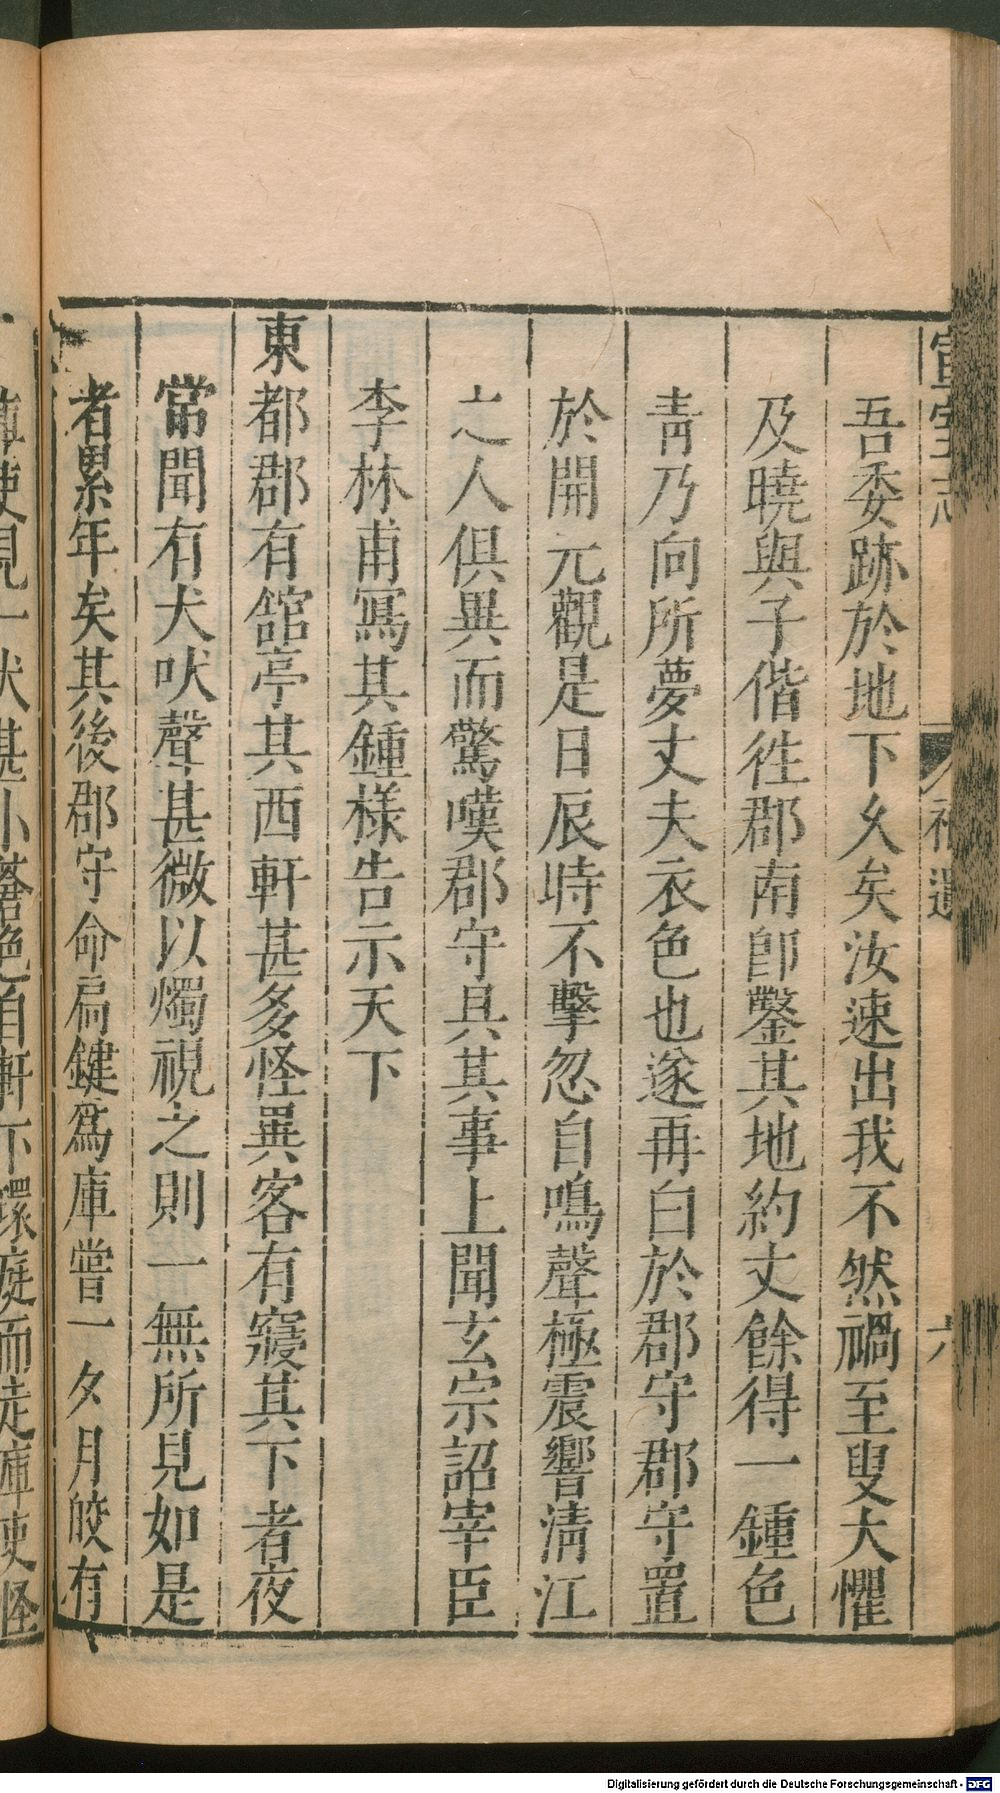 吾委跡於地下久矣汝速出我不然禍至叟大懼
及曉與子偕徃郡南卽鑿其地約丈餘得一鍾色
靑乃向所夢丈夫衣色也遂再白於郡守郡守置
於開元觀是日辰時不擊忽自鳴聲極震響淸江
之人俱異而驚嘆郡守具其事上聞玄宗詔宰臣
李林甫寫其鍾樣告示天下
東都郡有舘亭其西軒甚多怪異客有寢其下者夜
常聞有犬吠聲甚微以燭視之則一無所見如是
者累年矣其後郡守命扃鍵爲庫嘗一夕月皎有
Digitalisierung gefördert durch die Deutsche Forschungsgemeinschaft - DFG